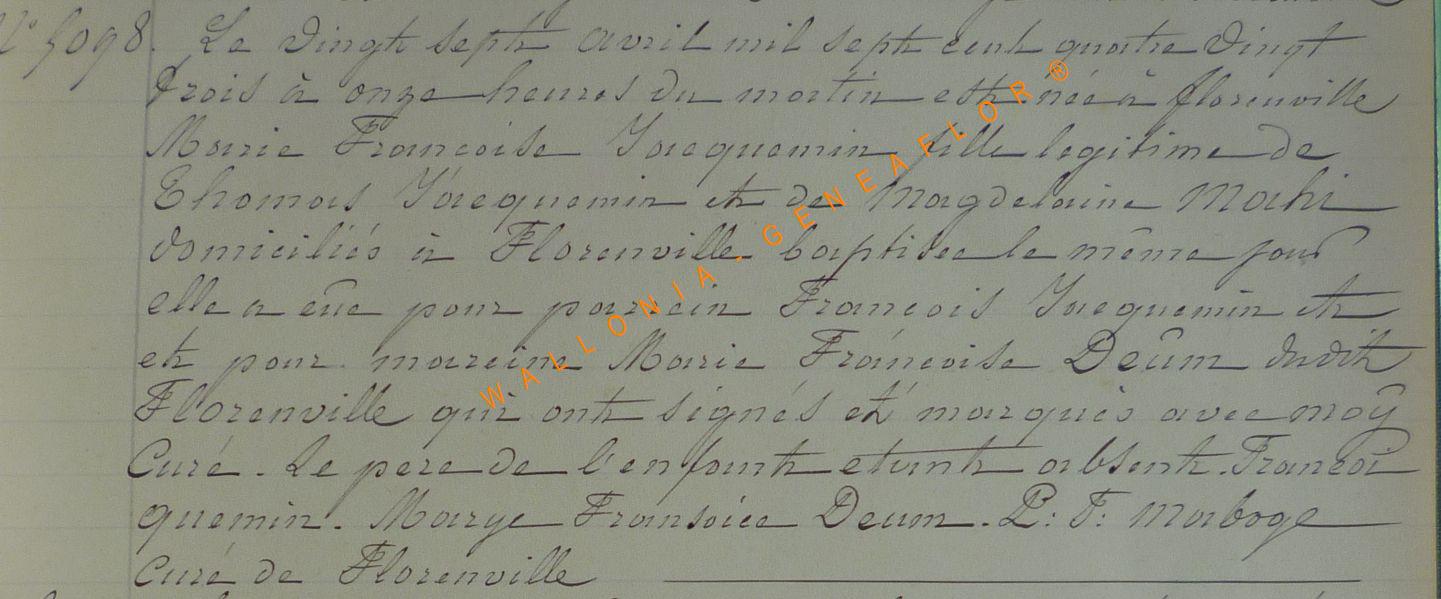 N° 5098. Le vingt sept avril mil sept cent quatre vingt
trois à onze heures du matin est née à florenville
Marie Francoise Jacquemin fille legitime de
Thomas Jacquemin et de Magdelaine Mahi
domiciliés à Florenville baptisée le même jour
elle a eûe pour parrein François Jacquemin et
et pour mareine Marie Francoise Deûm dudit
Florenville qui ont signés et marqués avec moÿ
Curé. Le pere de l'enfant etant absent. Francoi
quemin. Marye Fransoiee Deum. P: F: Maboge
curé de Florenville
WALLONIA-GENEAFLOR®